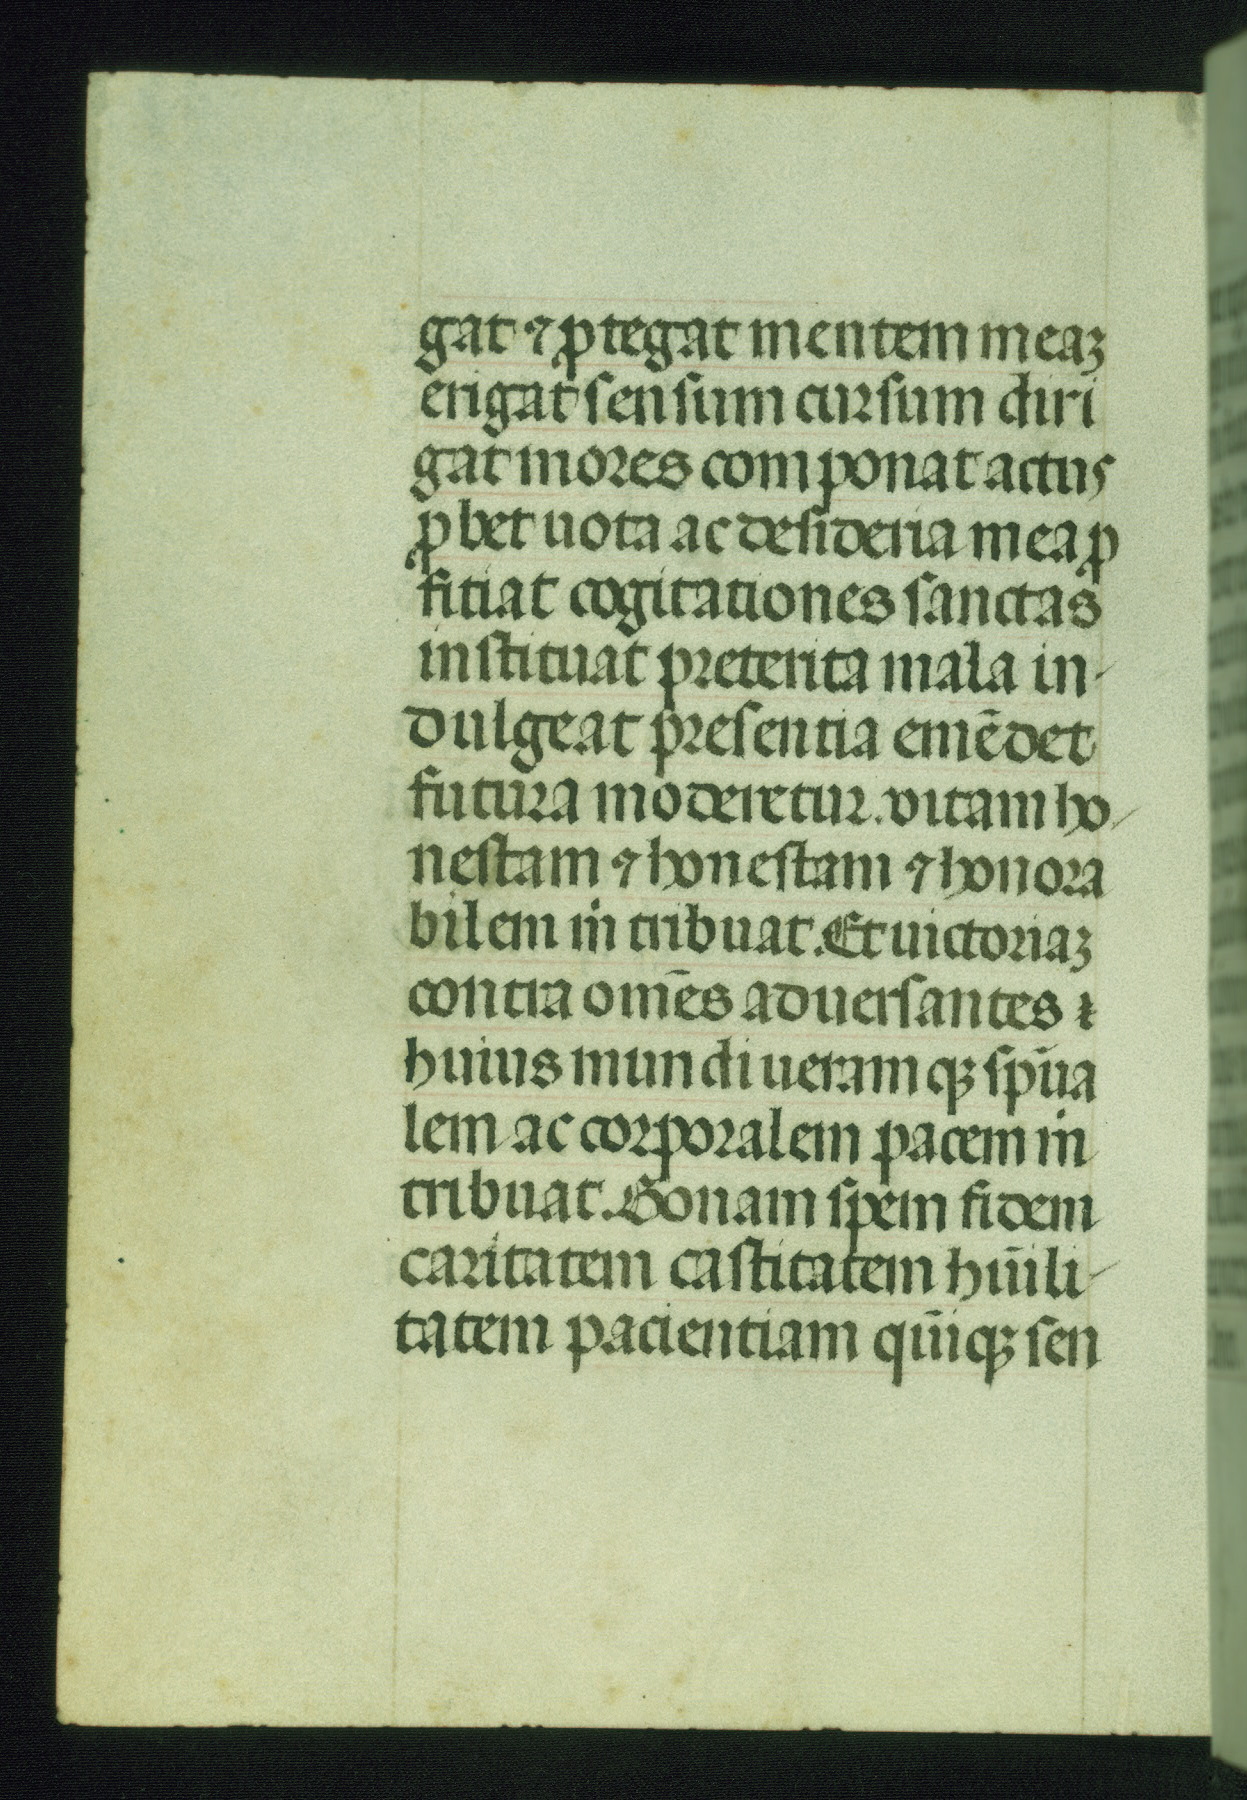 gat ⁊ ꝓtegat mentem meaꝫ
erigat sensum cursum diri
gat mores componat actus
ꝓbet uota ac desideria mea ꝓ
fitiat cogitationes sanctas
instituat preterita mala in-
dulgeat presentia emēdet
futura moderetur. vitam ho-
nestam ⁊ honestam ⁊ honora
bilem m̉ tribuat. Et uictoriaꝫ
contra om̄es aduersantes
huius mundi ueramqꝫ sp̄ua
lem ac corporalem pacem m̉
tribuat. Bonam spem fidem
caritatem castitatem hūili-
tatem pacientiam qūiqꝫ sen